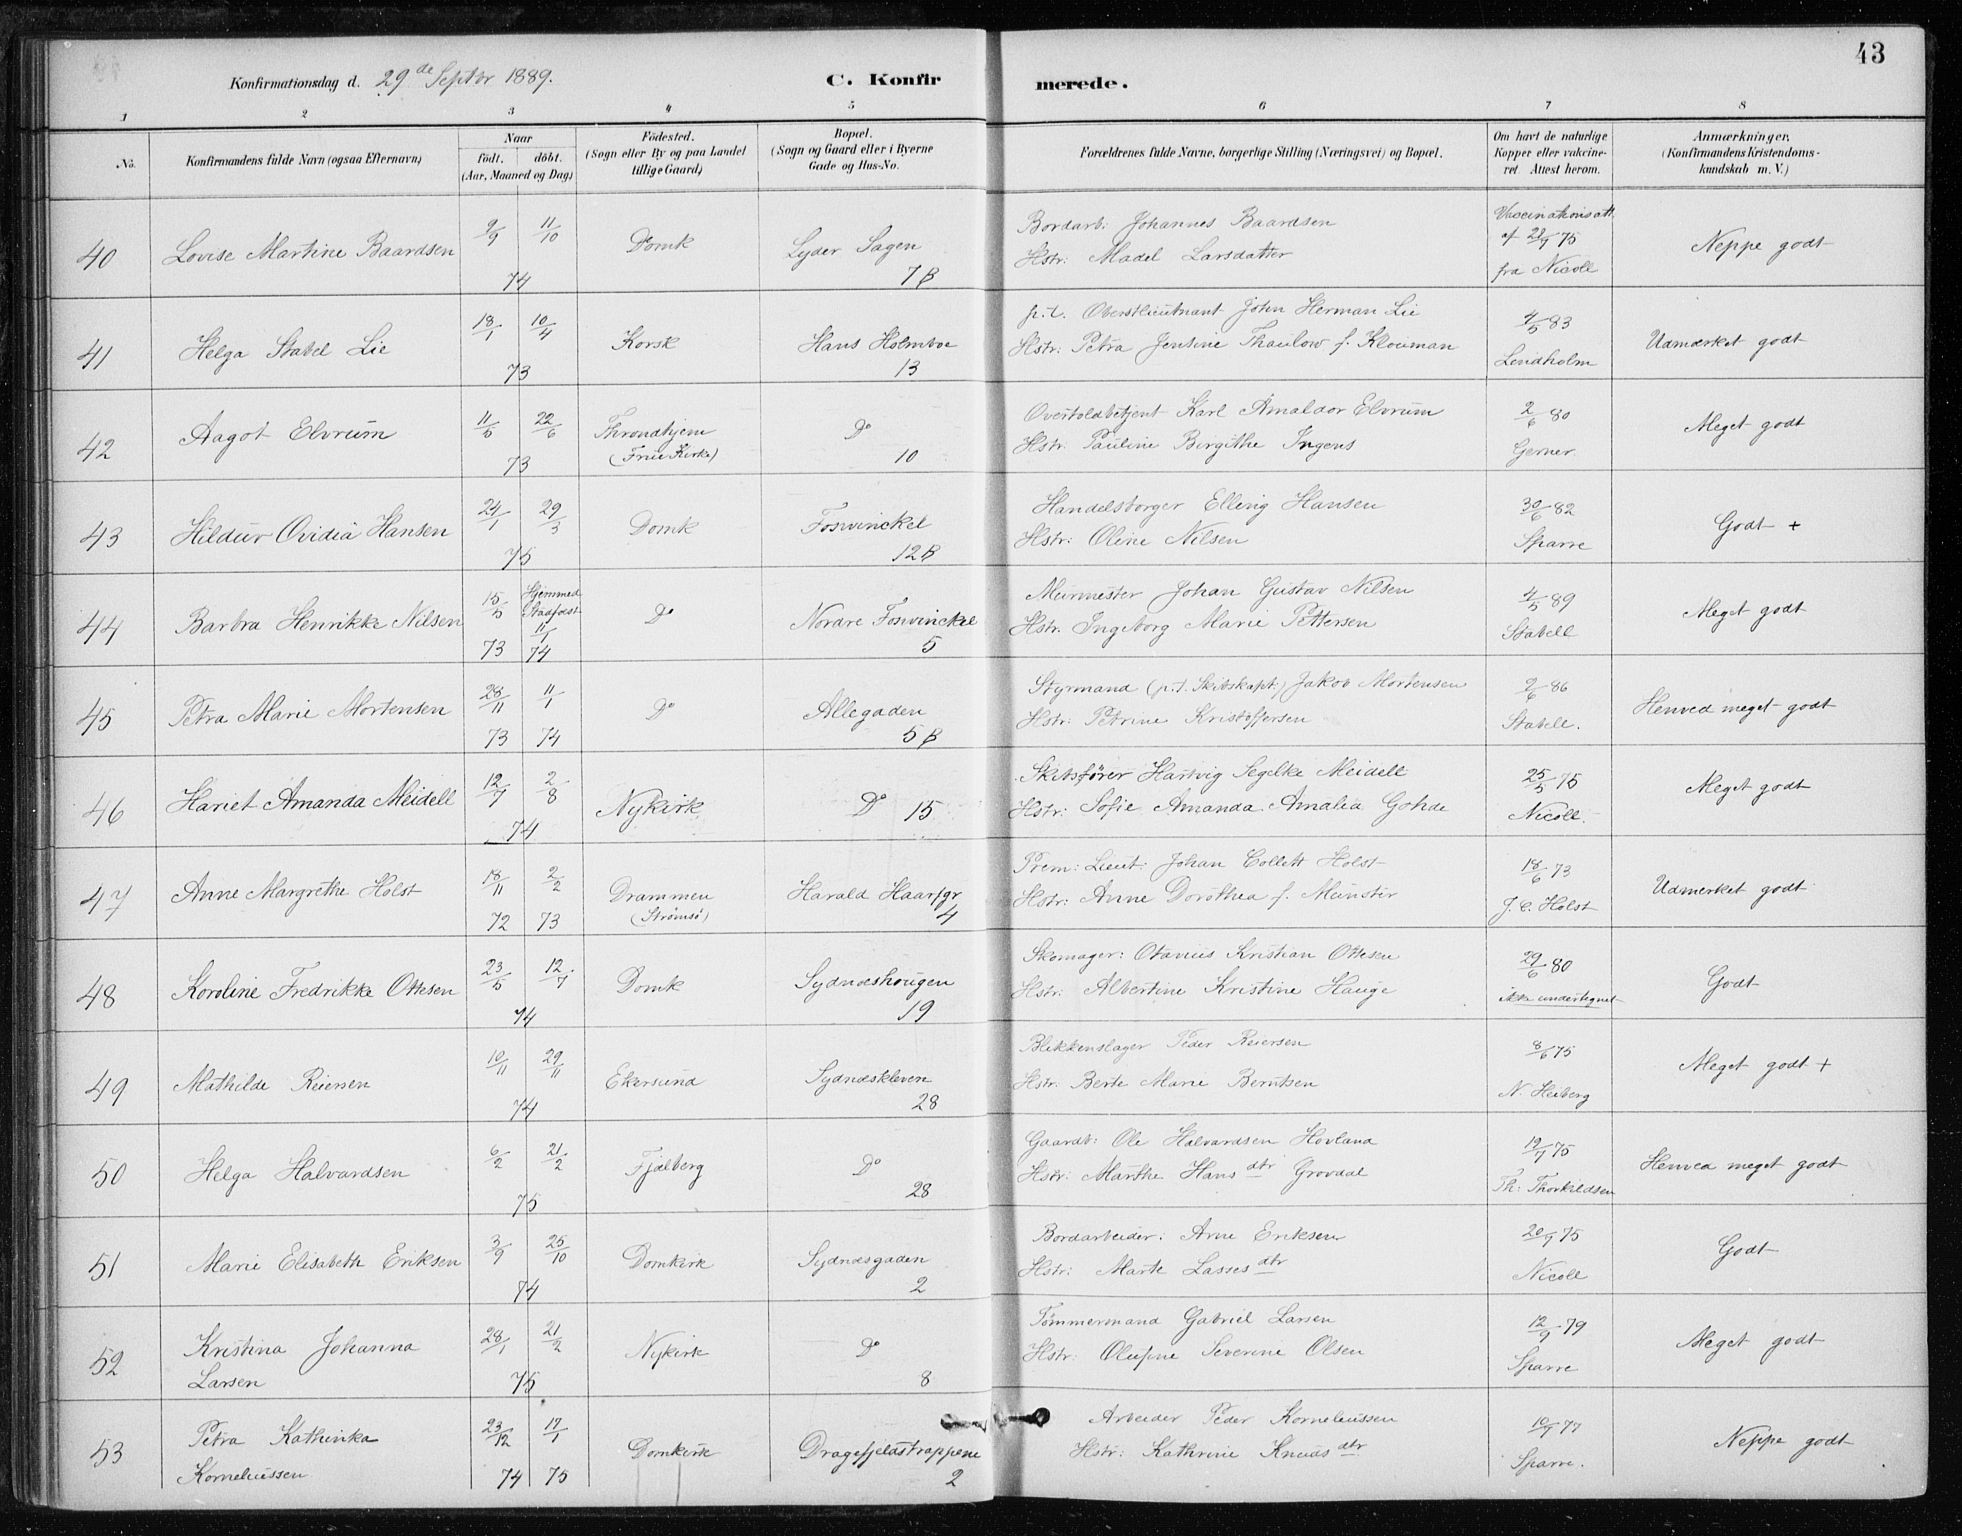 43
Konfirmationsdag d. 29de Septbr 1889.
C. Konfir merede.
1 2 3 4 5 6 7 8
No.
Konfirmandens fulde Navn (ogsaa Efternavn)
Naar
födt. döbt.
(Aar, Maaned og Dag)
Födested.
(Sogn eller By og paa Landet
tillige Gaard)
Bopæl.
(Sogn og Gaard eller i Byerne
Gade og Hus-No.
Forældrenes fulde Navne, borgerlige Stilling (Næringsvei) og Bopæl.
Om havt de naturlige
Kopper eller vakcine-
ret. Attest herom.
Anmærkninger.
(Konfirmandens Kristendoms-
kundskab m. V.)
40 Lovise Martine Baardsen 9/9 11/10 74 Domk Lyder Sagen 7B
Bordarb: Johannes Baardsen
Hstr: Madel Larsdatter
Vaccinationsatt.
af 21/9 75
fra Nicoll
Neppe godt
41 Helga Stabel Lie 18/1 10/4 73 Korsk Hans Holmboe 13
p.t. Oberstlieutnant John Herman Lie
Hstr: Petra Jensine Thaulow f. Klouman
4/5 83
Lendholm
Udmærket godt
42 Aagot Elvrum 11/5 22/6 73 Throndhjem (Frue Kirke) Do 10
Overtoldbetjent Karl Arnaldor Elvrum
Hstr: Pauline Birgithe Ingens
2/6 80
Gerner
Meget godt
43 Hildur Ovidia Hansen 24/1 29/3 75 Domk Foswinckel 12B
Handelsborger Elling Hansen
Hstr: Oline Nilsen
30/6 82
Sparre
Godt +
44 Barbra Henrikke Nilsen 15/5 73 Hjemmed. Stadfæst 11/1 74 Do Nordre Foswinckel 5
Murmester Johan Gustav Nilsen
Hstr. Ingeborg Marie Pettersen
4/5 89
Stabell
Meget godt
45 Petra Marie Mortensen 28/11 73 11/1 74 Do Allegaden 5B
Styrmand (p.t. Skibskapt:) Jakob Mortensen
Hstr: Petrine Kristoffersen
2/6 86
Stabell.
Henved meget godt
46 Hariet Amanda Meidell 12/7 2/8 74 Nykirk Do 15
Skibsfører Hartvig Segelke Meidell
Hstr: Sofie Amanda Amalia Gohde
25/5 75
Nicoll.
Meget godt
47 Anne Margrethe Holst 18/11 72 2/2 73 Drammen (Strømsö) Harald Haarfgr 4
Prem: Lieut: Johan Collett Holst
Hstr: Anne Dorothea f. Munster
18/6 73
J. C. Holst
Udmerket godt
48 Koroline Fredrikke Ottesen 23/5 12/7 74 Domk Sydneshougen 19
Skomager: Otavius Kristian Ottesen
Hstr: Albertine Kristine Hauge
29/6 80
ikke undertegnet
Godt
49 Mathilde Reiersen 10/11 29/11 74 Ekersund Sydneskleven 28
Blikkenslager Peder Reiersen
Hstr: Berte Marie Berntsen
8/6 75
N. Heiberg
Meget godt +
50 Helga Halvardsen 6/2 21/2 75 Fjelberg Do 28
Gaardb: Ole Halvardsen Hovland
Hstr: Marthe Hansdtr Grovdal
19/7 75
Th: Thorkildsen
Henved meget godt
51 Marie Elisabeth Eriksen 3/9 25/10 74 Domkirk Sydnesgaden 2
Bordarbeider: Arne Eriksen
Hstr: Marte Lassesdtr
20/9 75
Nicoll
Godt
52 Kristina Johanna
Larsen 28/1 21/2 75 Nykirk Do 8
Tömmermand Gabriel Larsen
Hstr: Olufine Severine Olsen
12/9 79
Sparre
Meget godt
53 Petra Kathinka
Korneliussen 23/12 74 17/1 75 Domkirk Dragefjeldstrappene 2
Arbeider Peder Korneliussen
Hstr: Kathrine Knudsdtr
10/9 77
Sparre.
Neppe godt